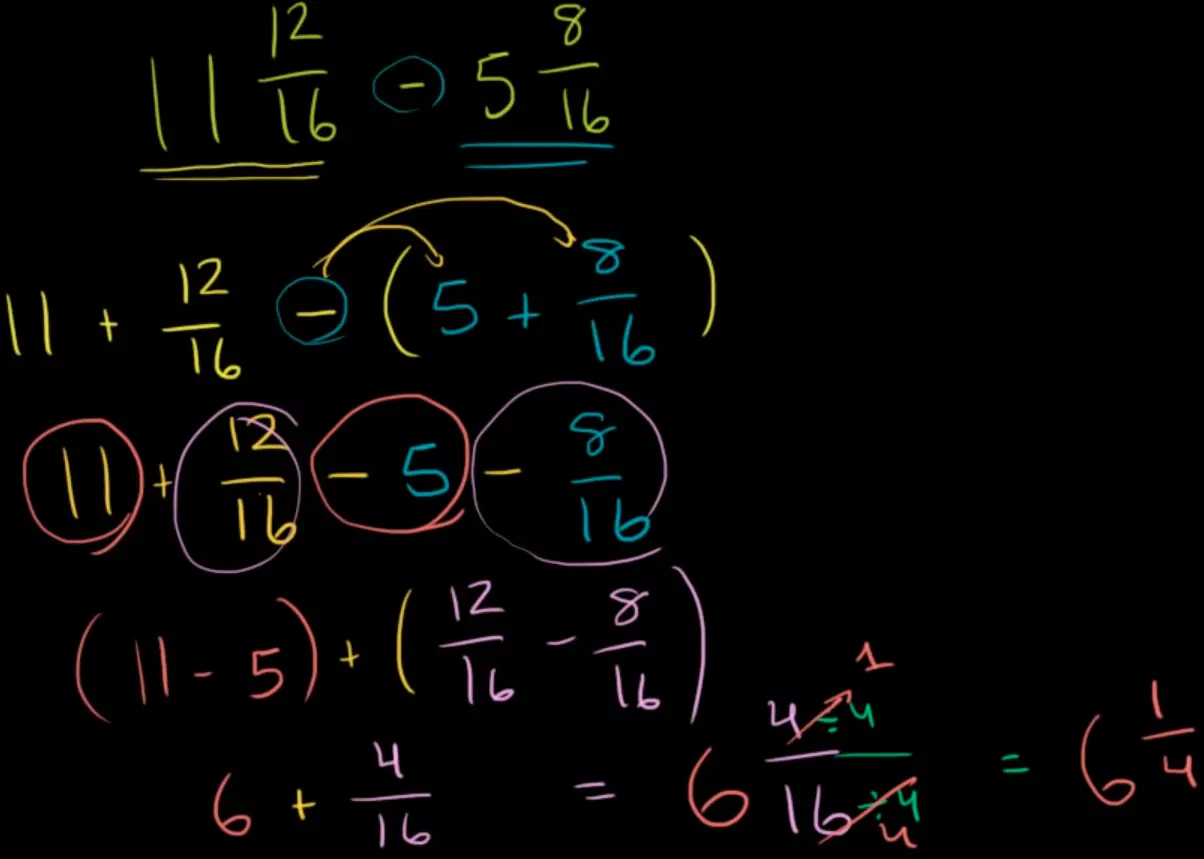 11 12/16 - 5 8/16
11 + 12/16 - (5 + 8/16)
11 + 12/16 - 5 - 8/16
(11 - 5) + (12/16 - 8/16)
6 + 4/16 = 6 4÷4/16÷4 1 4 = 6 1/4